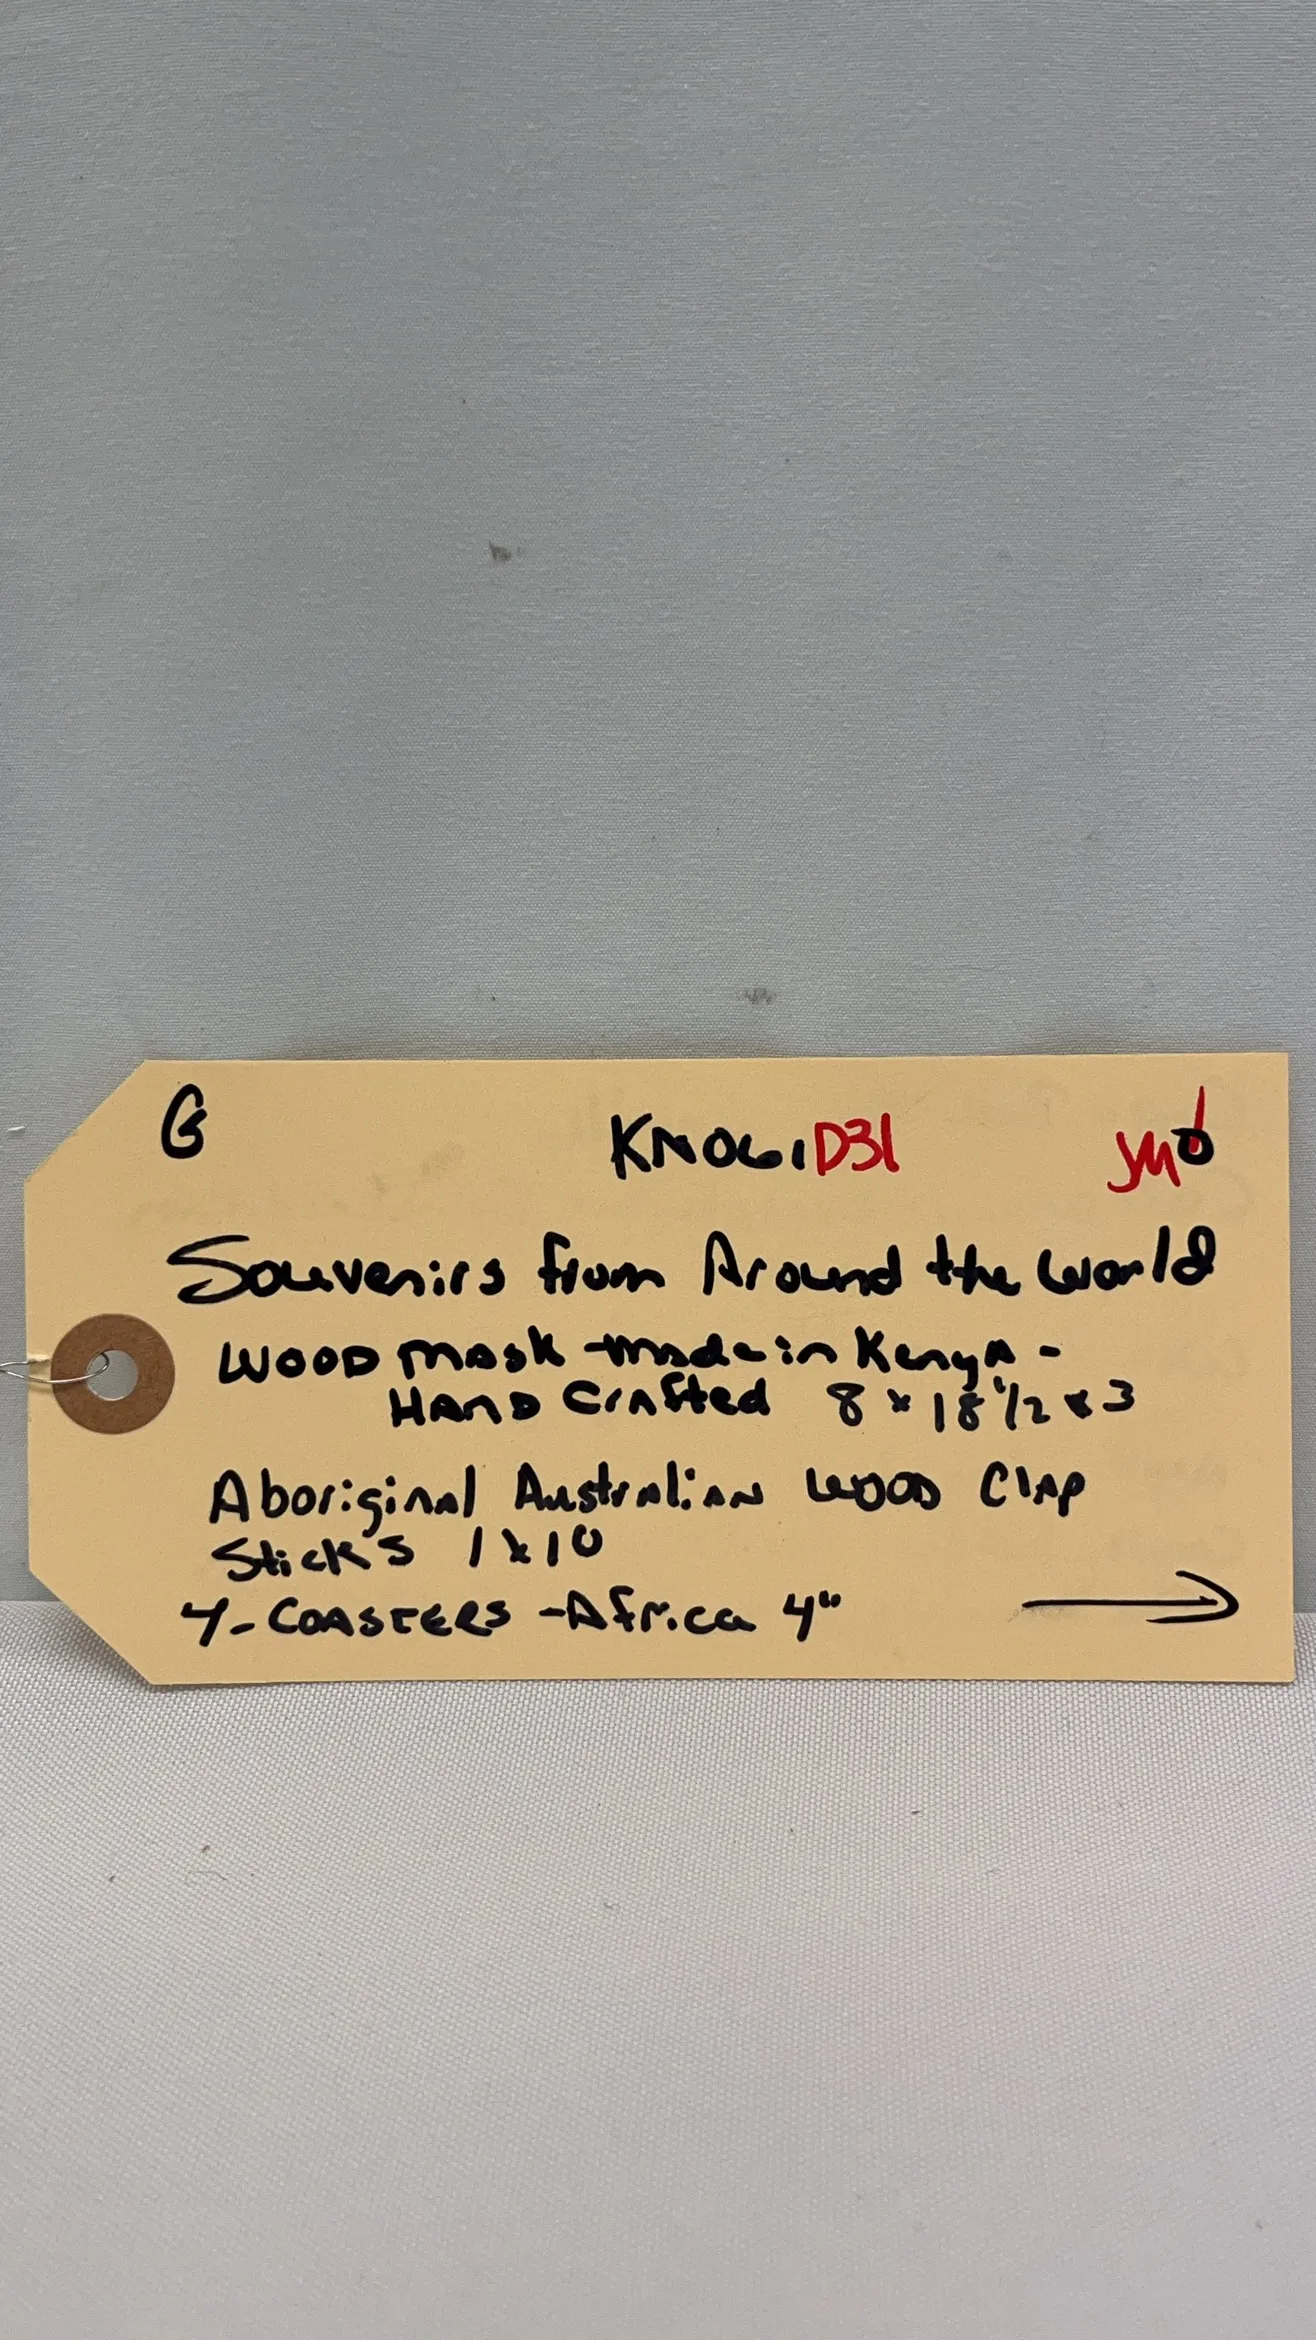 G KNO61D31
Souvenirs from Around the World
Wood mask - made in Kenya -
Hand Crafted 8 x 18 1/2 x 3
Aboriginal Australian Wood Clap
Sticks 1 x 10
4 - COASTERS - Africa 4"